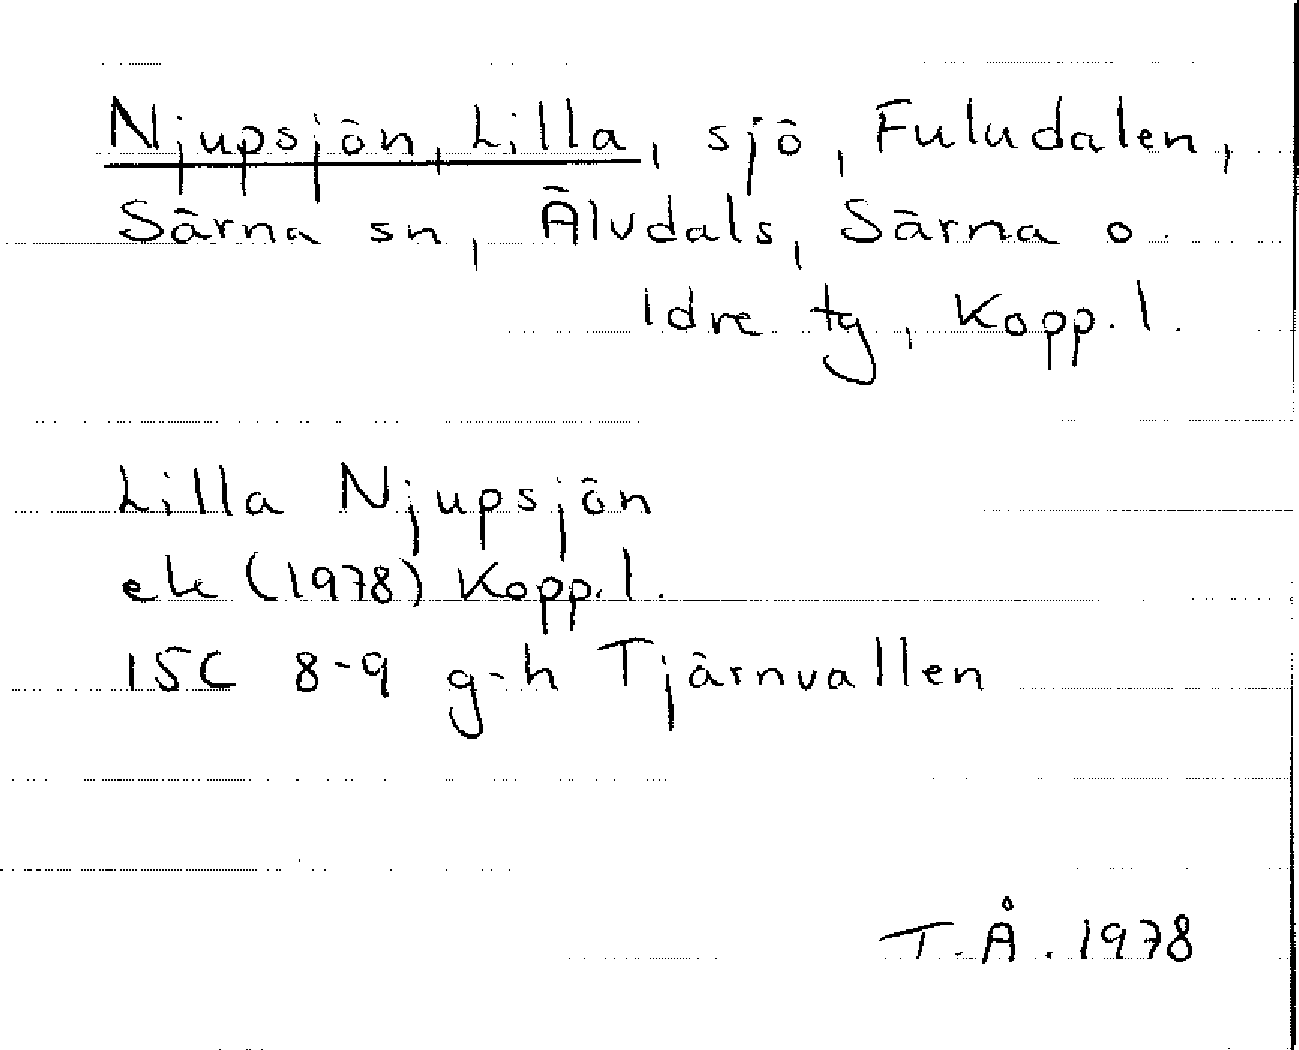 Njupsjön, Lilla, sjö, Fuludalen,
Särna sn, Älvdals, Särna o.
Idre tg, Kopp. l.
Lilla Njupsjön
ek (1978) Kopp. l.
15C 8-9 g-h Tjärnvallen
T. Å. 1978